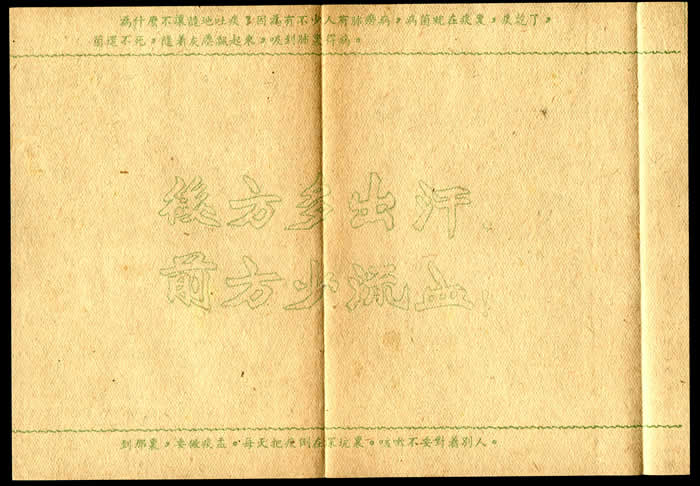 為什麼不讓隨地吐痰？因為有不少人有肺癆病，病菌就在痰裏，痰乾了，
菌還不死，隨着灰塵飄起來，吸到肺裏得病。
後方多出汗，
前方少流血！
到那裏，要做痰盂。每天把痰倒在深坑裏。咳嗽不要對着別人。